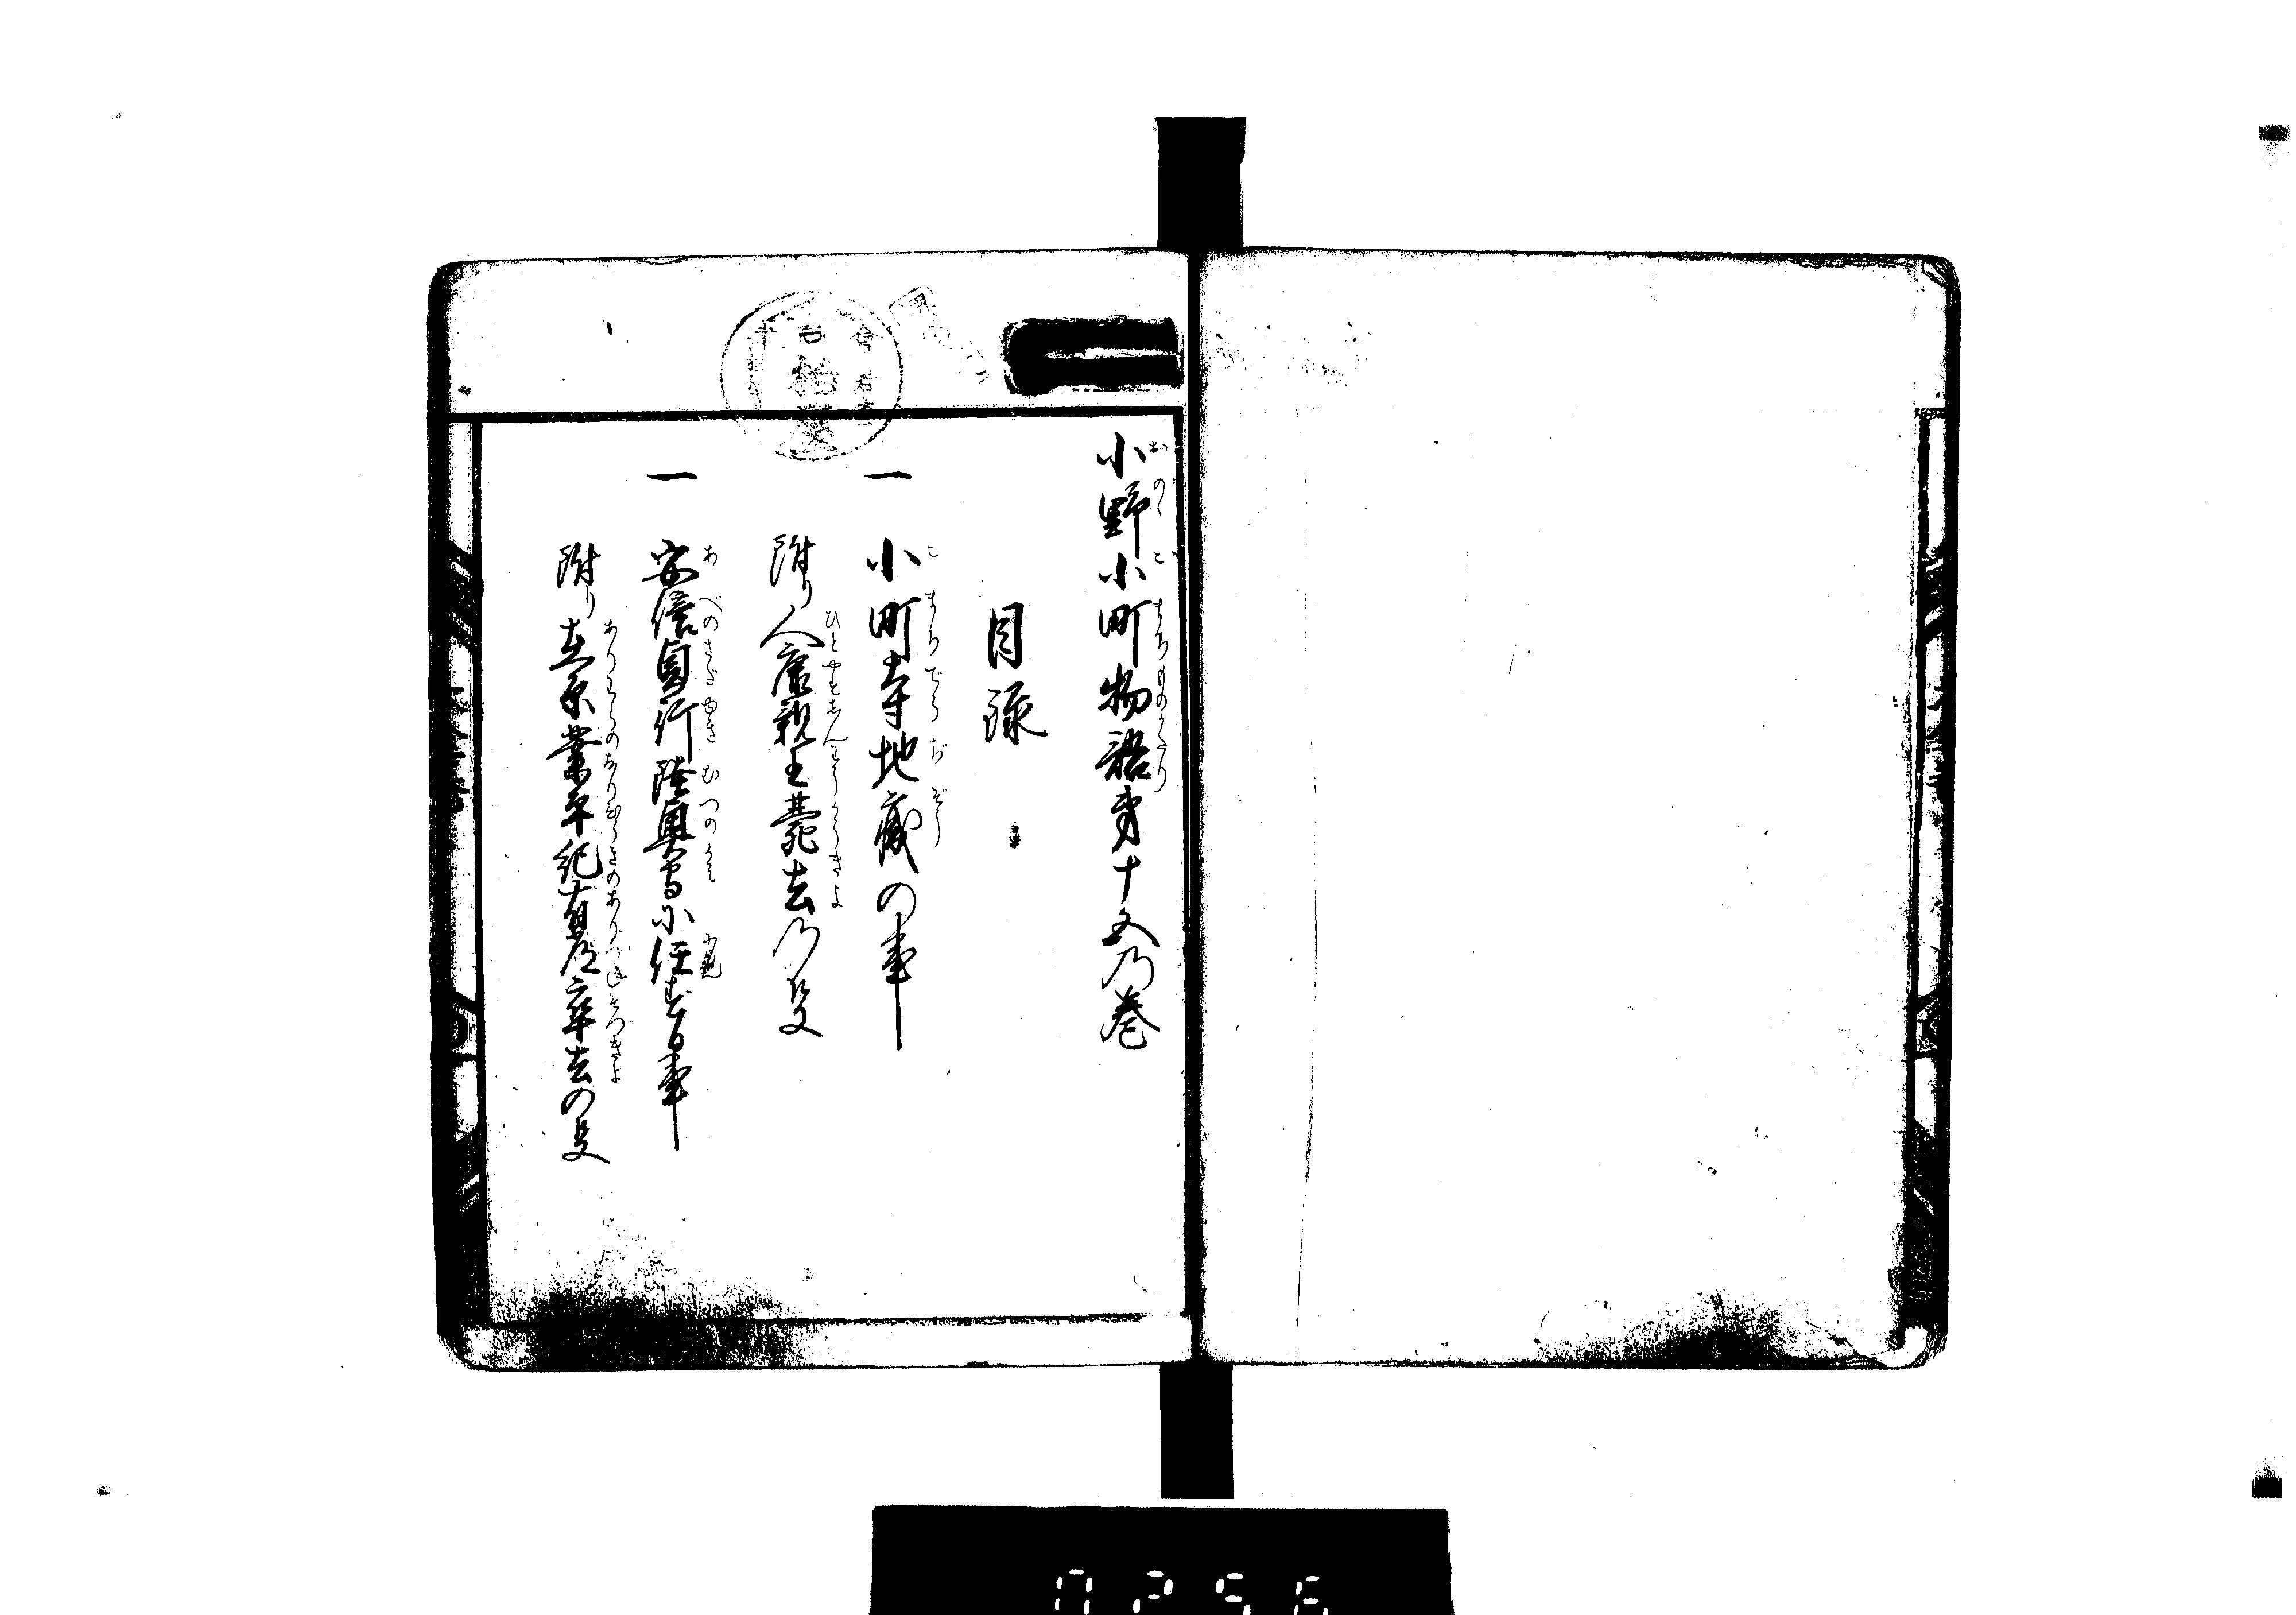 小野小町物語第十五乃巻
目録
一 小町寺地蔵の事
附り人康親王薨去乃叓
一 安倍貞行陸奥守に任ずる事
附り在原業平紀有常卒去の叓
0256